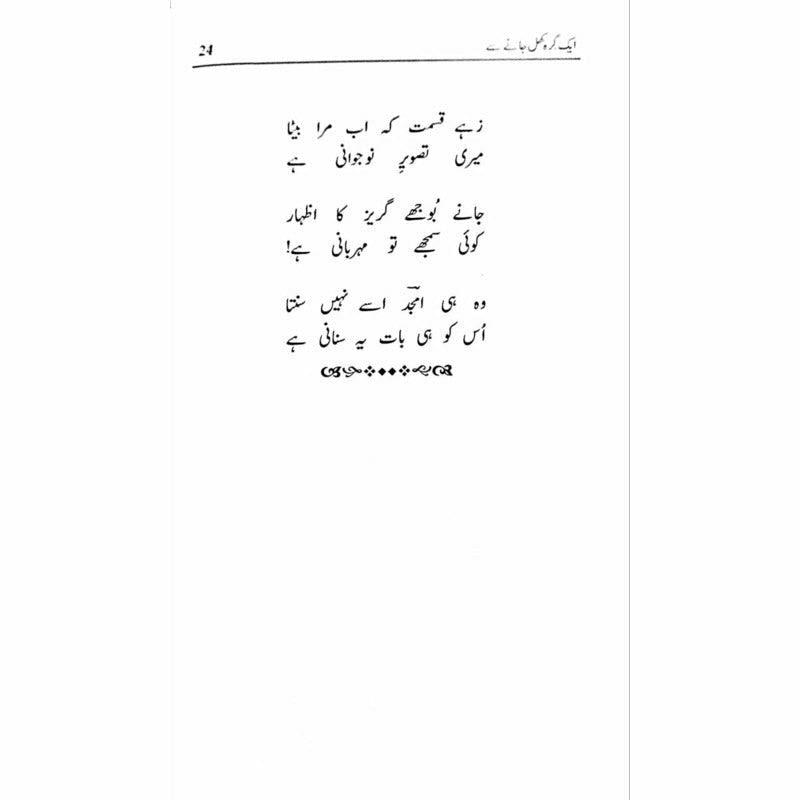 ایک گرہ کھل جانے سے
24
زہے قسمت کہ اب مرا بیٹا
میری تصویرِ نوجوانی ہے
جانے بُوجھے گریز کا اظہار
کوئی سمجھے تو مہربانی ہے!
وہ ہی امجدؔ اسے نہیں سنتا
اُس کو ہی بات یہ سنانی ہے